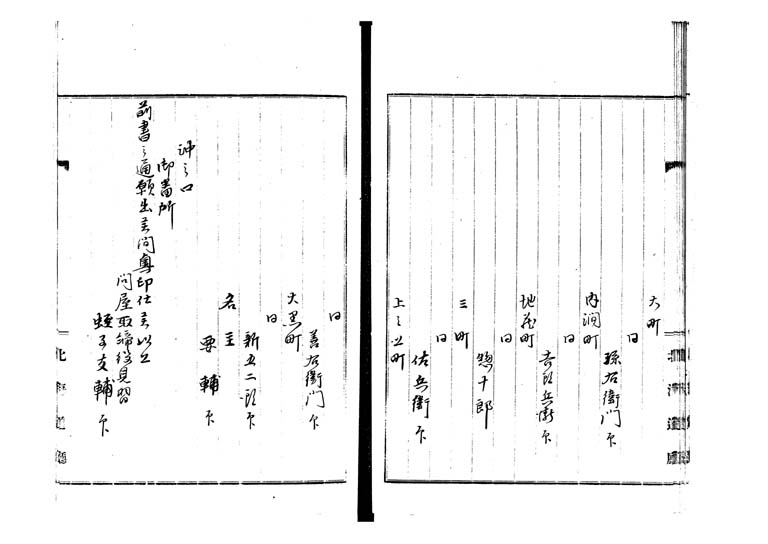 大町
同
孫右衛門 印
内澗町
同
吉郎兵衛 印
地蔵町
同
惣十郎
三町
同
佐兵衛 印
上之山町
同
善右衛門 印
大黒町
同
新五二郎 印
名主
要輔 印
沖之口
御番所
前書之通願出候間奥印仕候以上
問屋取締役見習
蛭子友輔 印